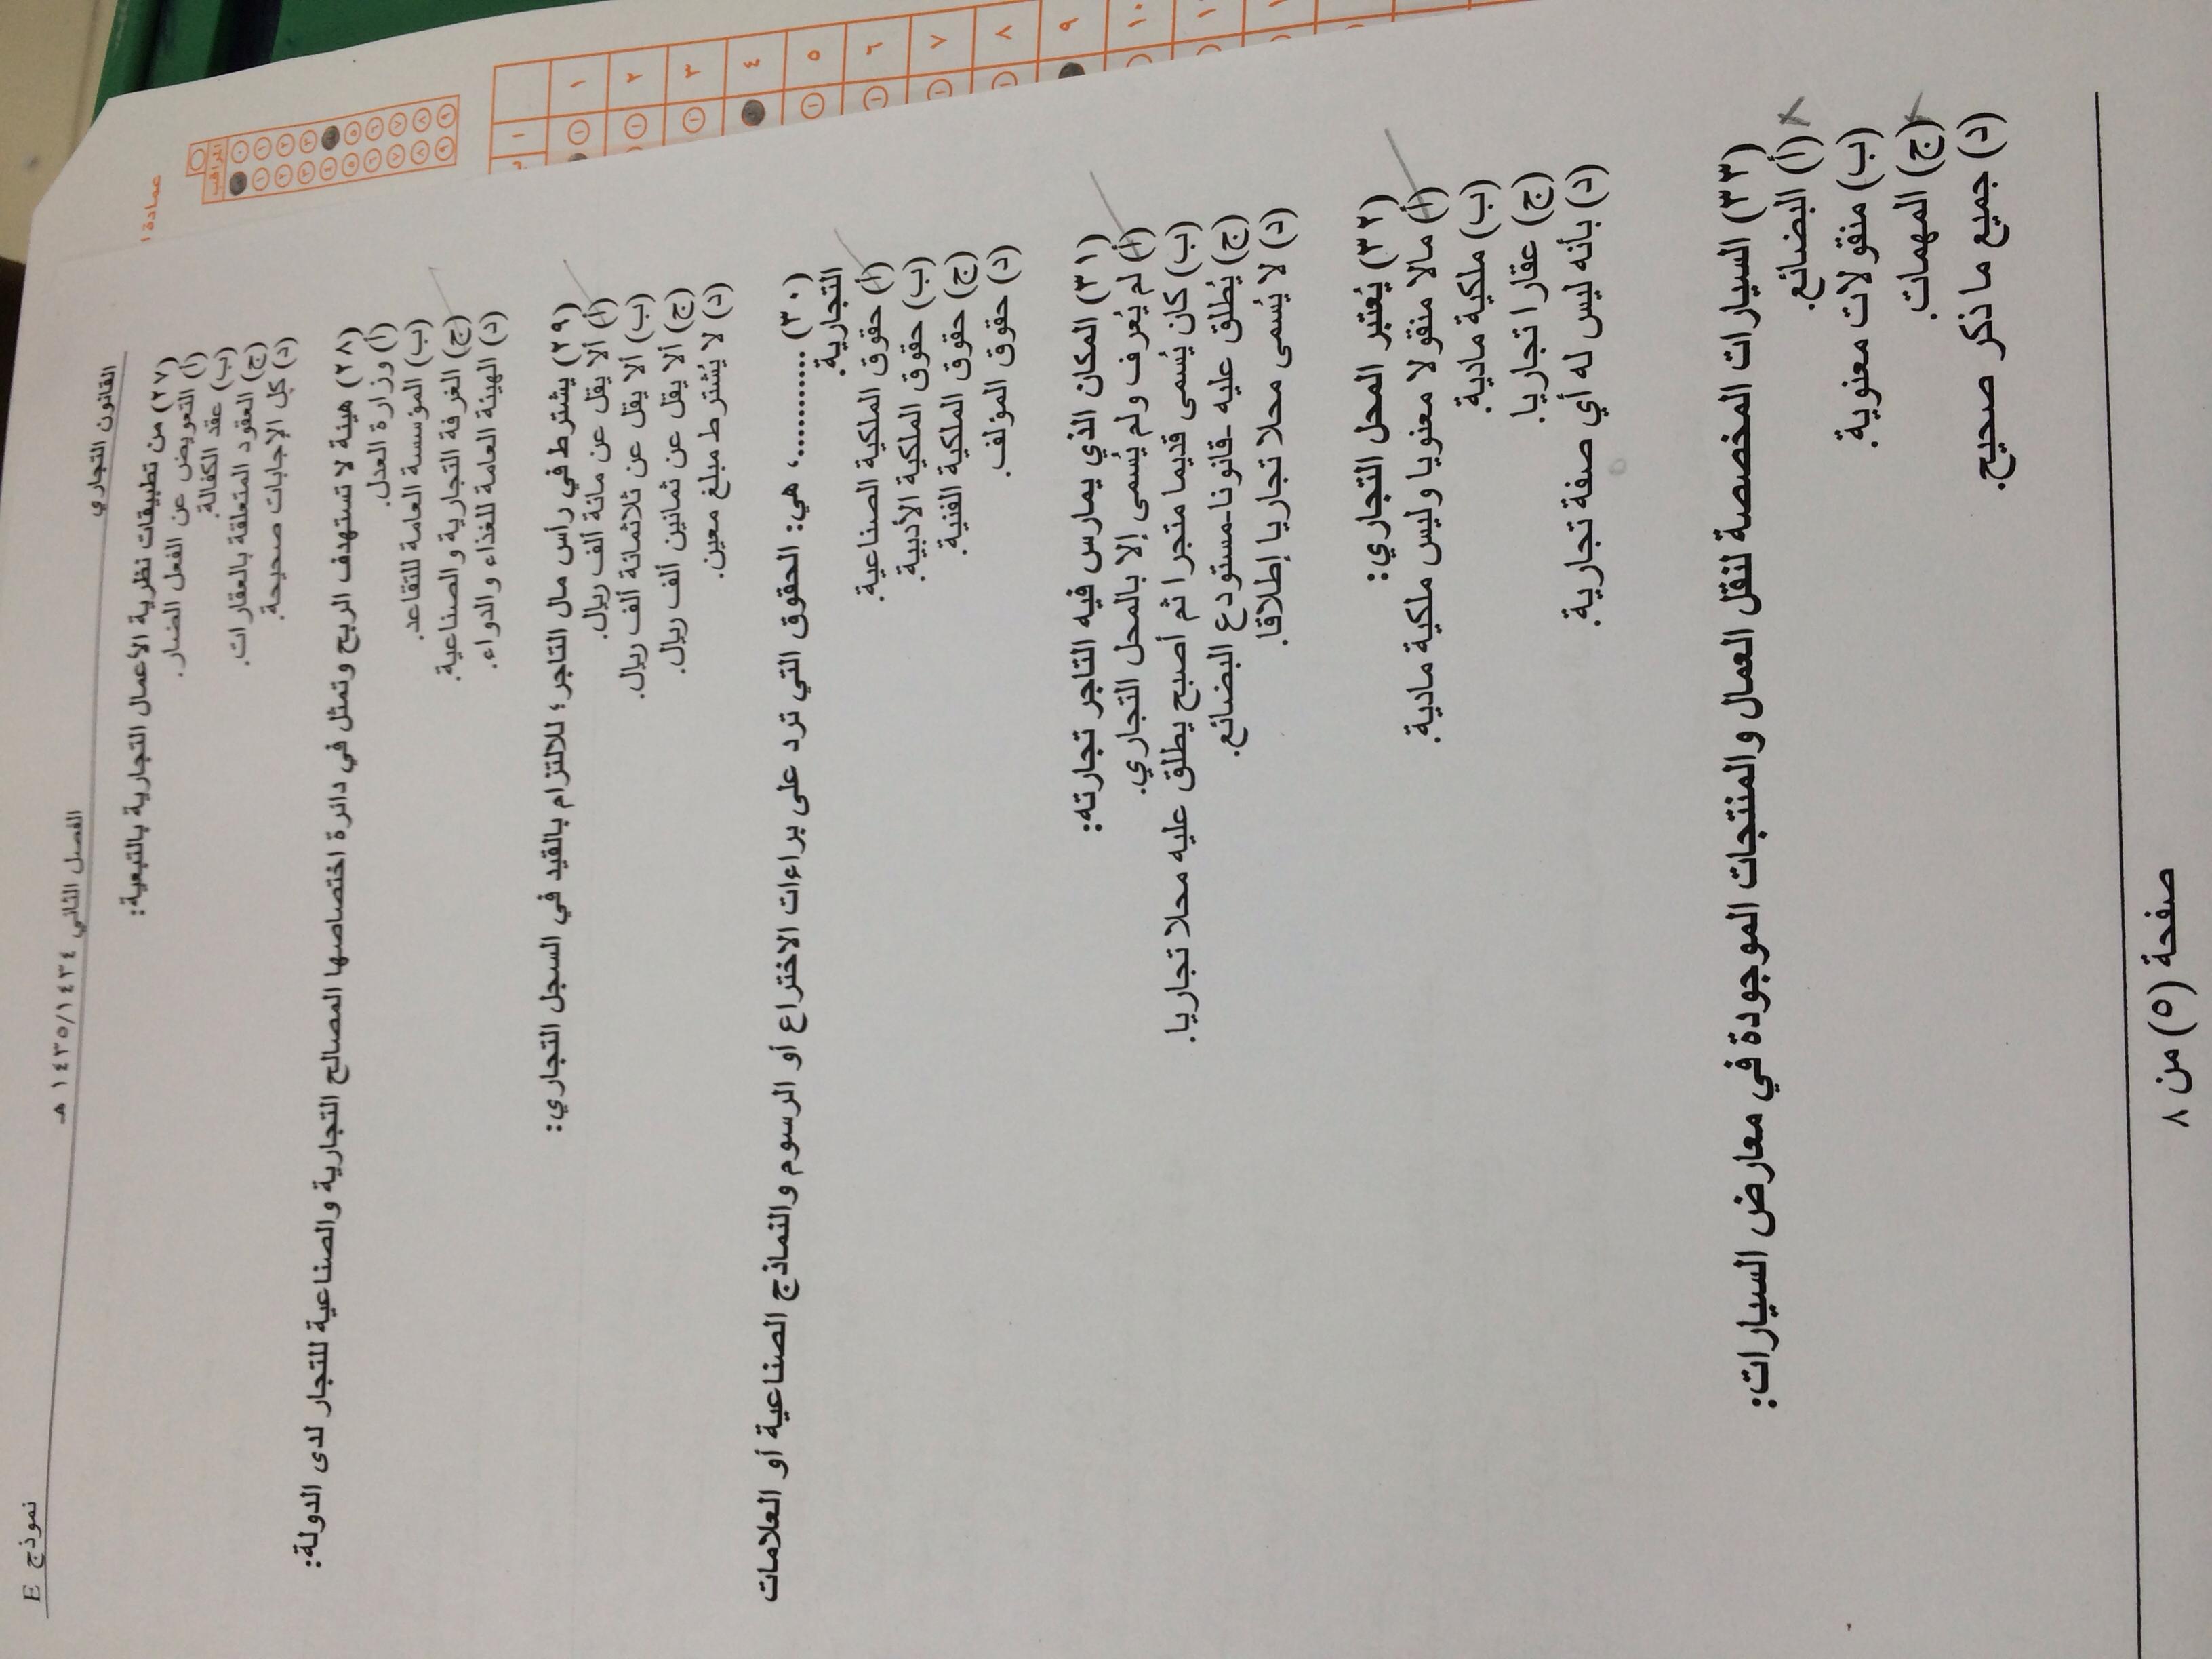 نموذج E
الفصل الثاني ١٤٣٥/١٤٣٤ هـ
القانون التجاري
(٢٧) من تطبيقات نظرية الأعمال التجارية بالتبعية:
(أ) التعويض عن الفعل الضار.
(ب) عقد الكفالة.
(ج) العقود المتعلقة بالعقارات.
(د) كل الإجابات صحيحة.
(٢٨) هيئة لا تستهدف الربح وتمثل في دائرة اختصاصها المصالح التجارية والصناعية للتجار لدى الدولة:
(أ) وزارة العدل.
(ب) المؤسسة العامة للتقاعد.
(ج) الغرفة التجارية والصناعية.
(د) الهيئة العامة للغذاء والدواء.
(٢٩) يشترط في رأس مال التاجر؛ للالتزام بالقيد في السجل التجاري:
(أ) ألا يقل عن مائة ألف ريال.
(ب) ألا يقل عن ثلاثمائة ألف ريال.
(ج) ألا يقل عن ثمانين ألف ريال.
(د) لا يُشترط مبلغ معين.
(٣٠) ............، هي: الحقوق التي ترد على براءات الاختراع أو الرسوم والنماذج الصناعية أو العلامات
التجارية.
(أ) حقوق الملكية الصناعية.
(ب) حقوق الملكية الأدبية.
(ج) حقوق الملكية الفنية.
(د) حقوق المؤلف.
(٣١) المكان الذي يمارس فيه التاجر تجارته:
(أ) لم يُعرف ولم يُسمى إلا بالمحل التجاري.
(ب) كان يُسمى قديما متجرا ثم أصبح يطلق عليه محلا تجاريا.
(ج) يُطلق عليه -قانونا-مستودع البضائع.
(د) لا يُسمى محلا تجاريا إطلاقا.
(٣٢) يُعتبر المحل التجاري:
(أ) مالا منقولا معنويا وليس ملكية مادية.
(ب) ملكية مادية.
(ج) عقارا تجاريا.
(د) بأنه ليس له أي صفة تجارية.
(٣٣) السيارات المخصصة لنقل العمال والمنتجات الموجودة في معارض السيارات:
(أ) البضائع.
(ب) منقولات معنوية.
(ج) المهمات.
(د) جميع ما ذكر صحيح.
صفحة (٥) من ٨
عمادة ا
المراقب
١
١
٢
٣
٤
٥
٦
٧
٨
٩
١٠